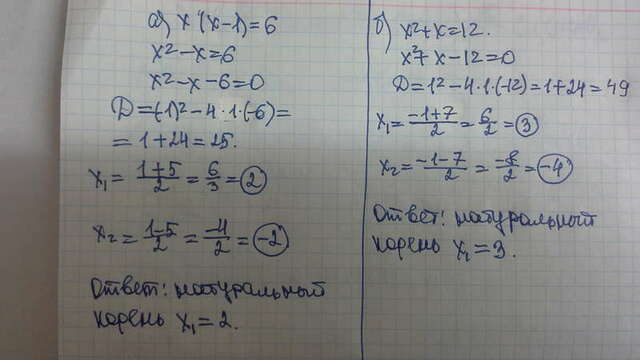 а) x·(x-1)=6
x²-x=6
x²-x-6=0
D=(-1)²-4·1·(-6)=
=1+24=25.
x₁= (1+5)/2 = 6/3 = 2
x₂= (1-5)/2 = -4/2 = -2
Ответ: натуральный
корень x₁=2.
б) x²+x=12.
x²+x-12=0
D=1²-4·1·(-12)=1+24=49
x₁= (-1+7)/2 = 6/2 = 3
x₂= (-1-7)/2 = -8/2 = -4
Ответ: натуральный
корень x₁=3.